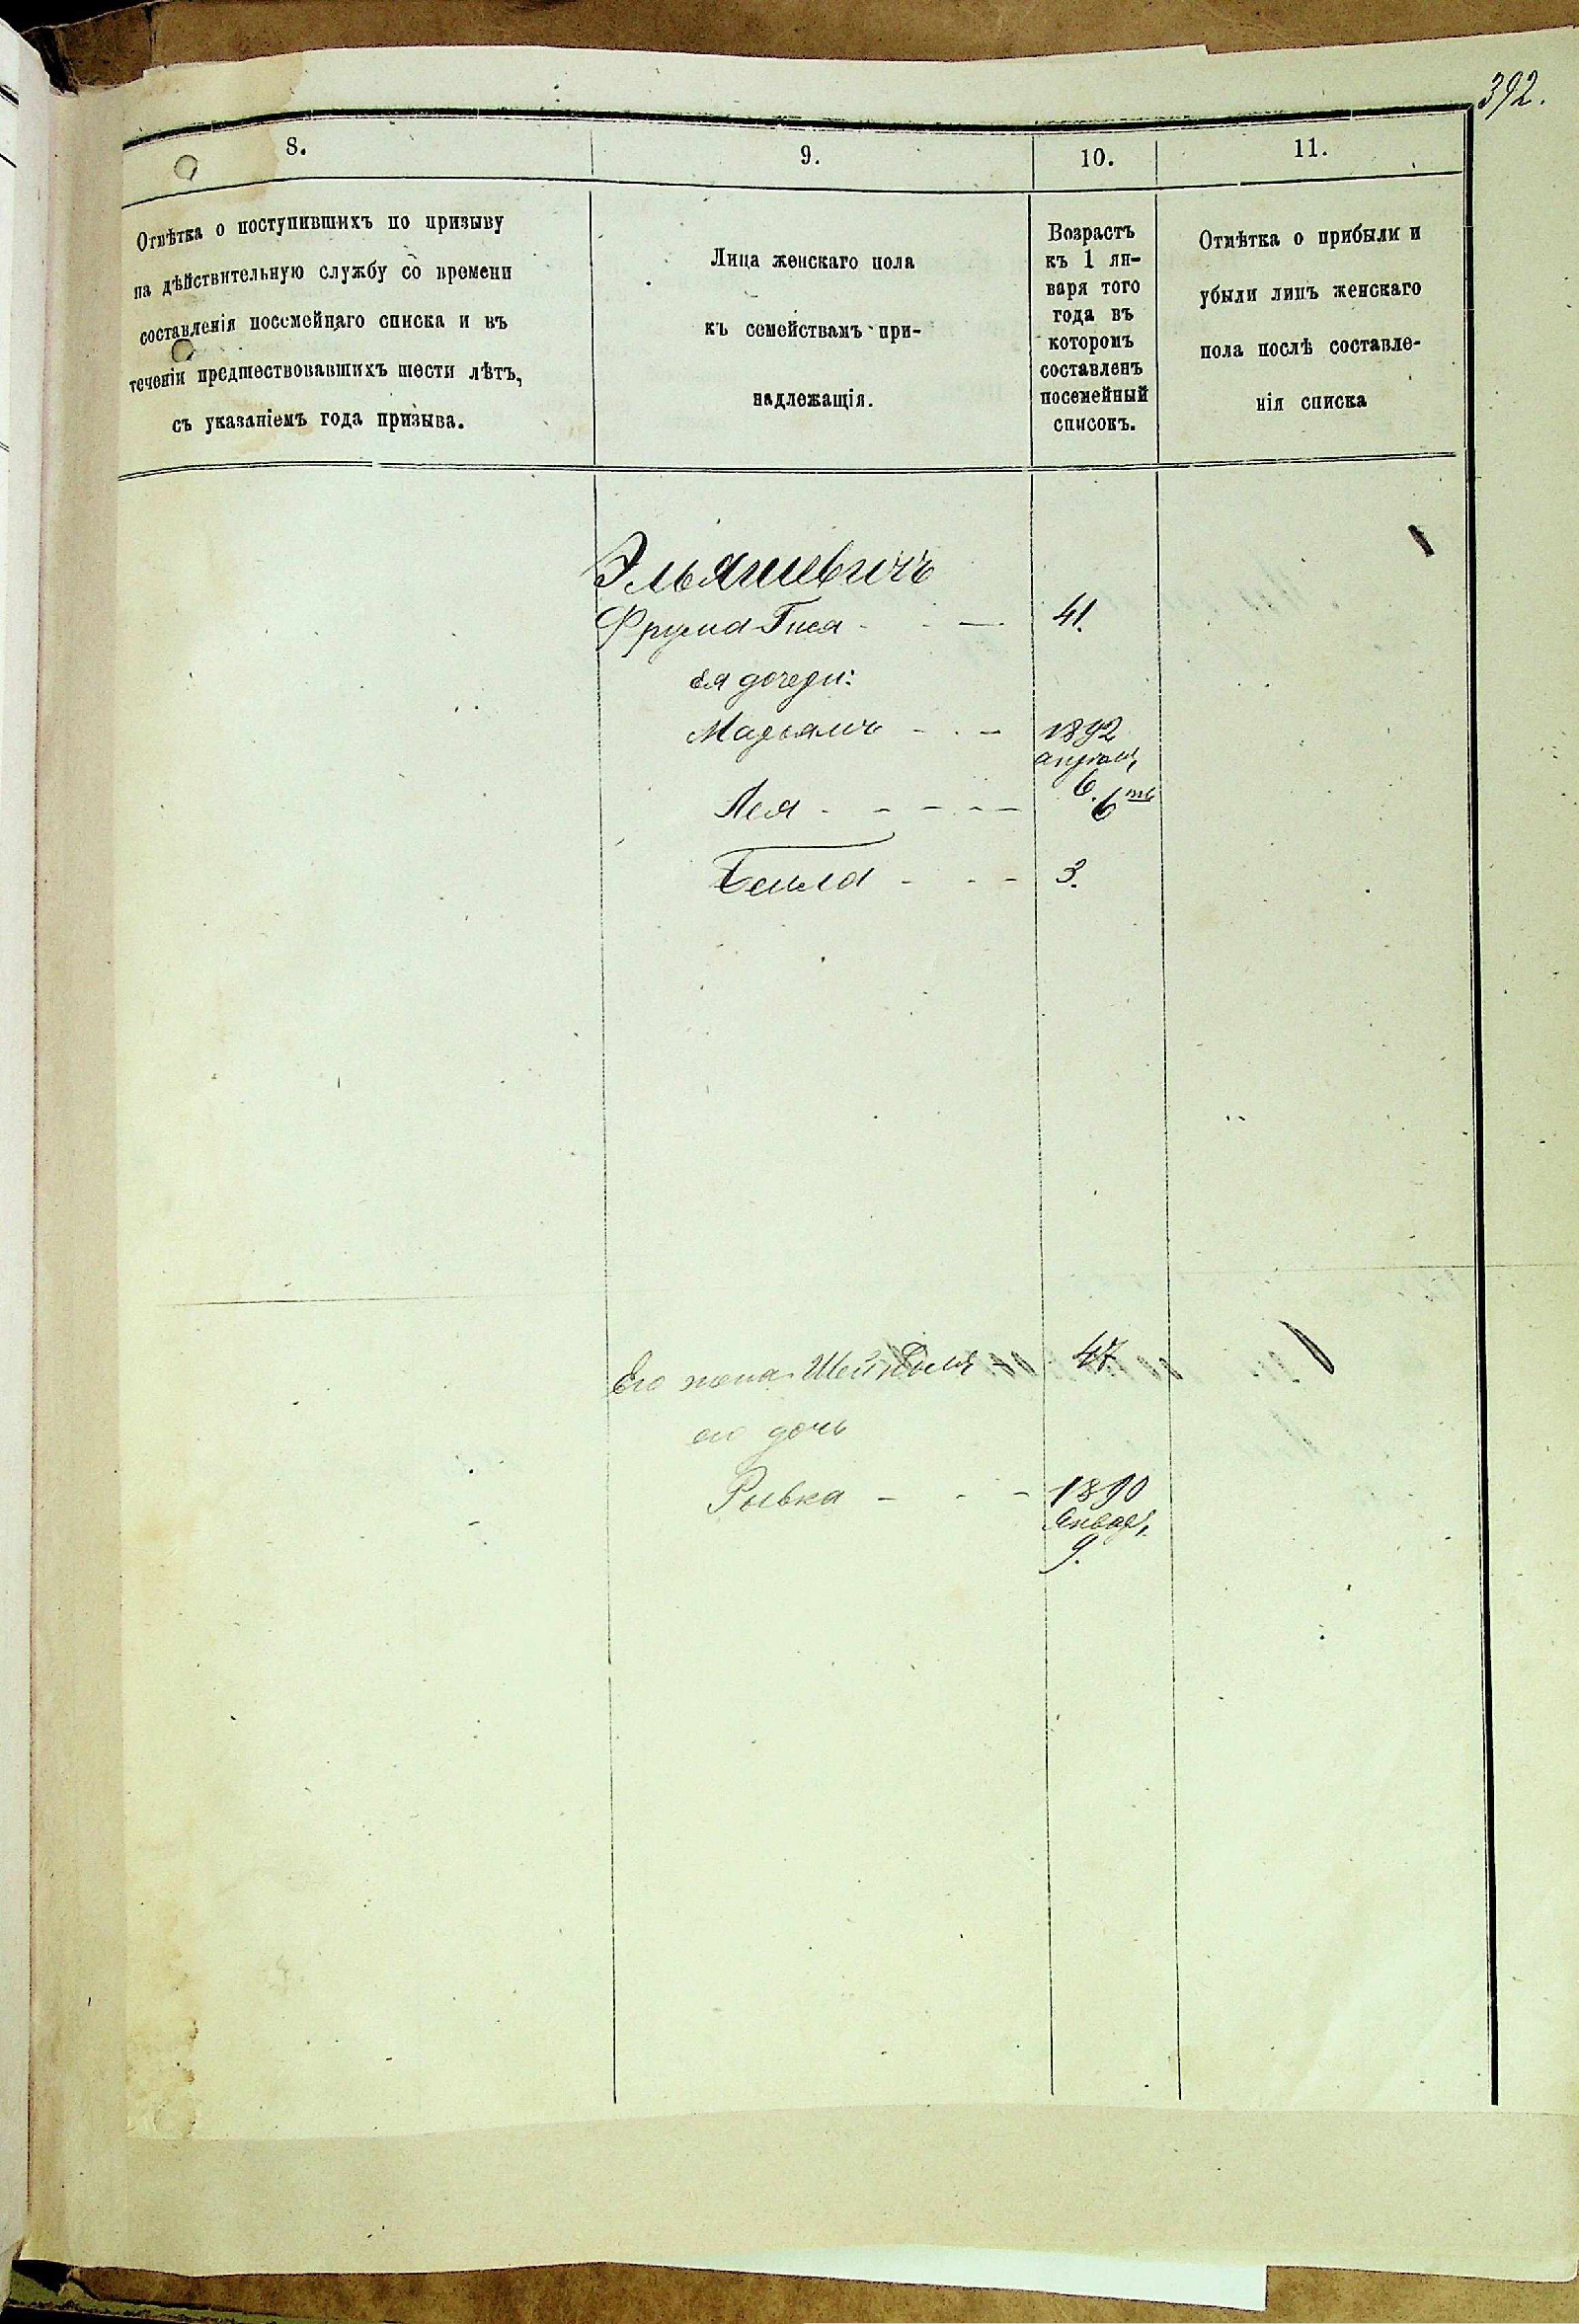 392.
8.
9.
10.
11.
Отмѣтка о поступившихъ по призыву
на дѣйствительную службу со времени
составленія посемейнаго списка и въ
теченіи предшествовавшихъ шести лѣтъ,
съ указаніемъ года призыва.
Лица женскаго пола
къ семействамъ при-
надлежащія.
Возрастъ
къ 1 ян-
варя того
года въ
которомъ
составленъ
посемейный
списокъ.
Отмѣтка о прибыли и
убыли лицъ женскаго
пола послѣ составле-
нія списка
Эльяшевичъ
Фрума-Гися - - — 41.
ея дочери:
Марьямъ - - - 1892
апрѣля
6.
Лея - - - - - 6
Бейла - - - 3.
Его жена Шейна 47
его дочь
Ривка - - - 1890
Января
9.